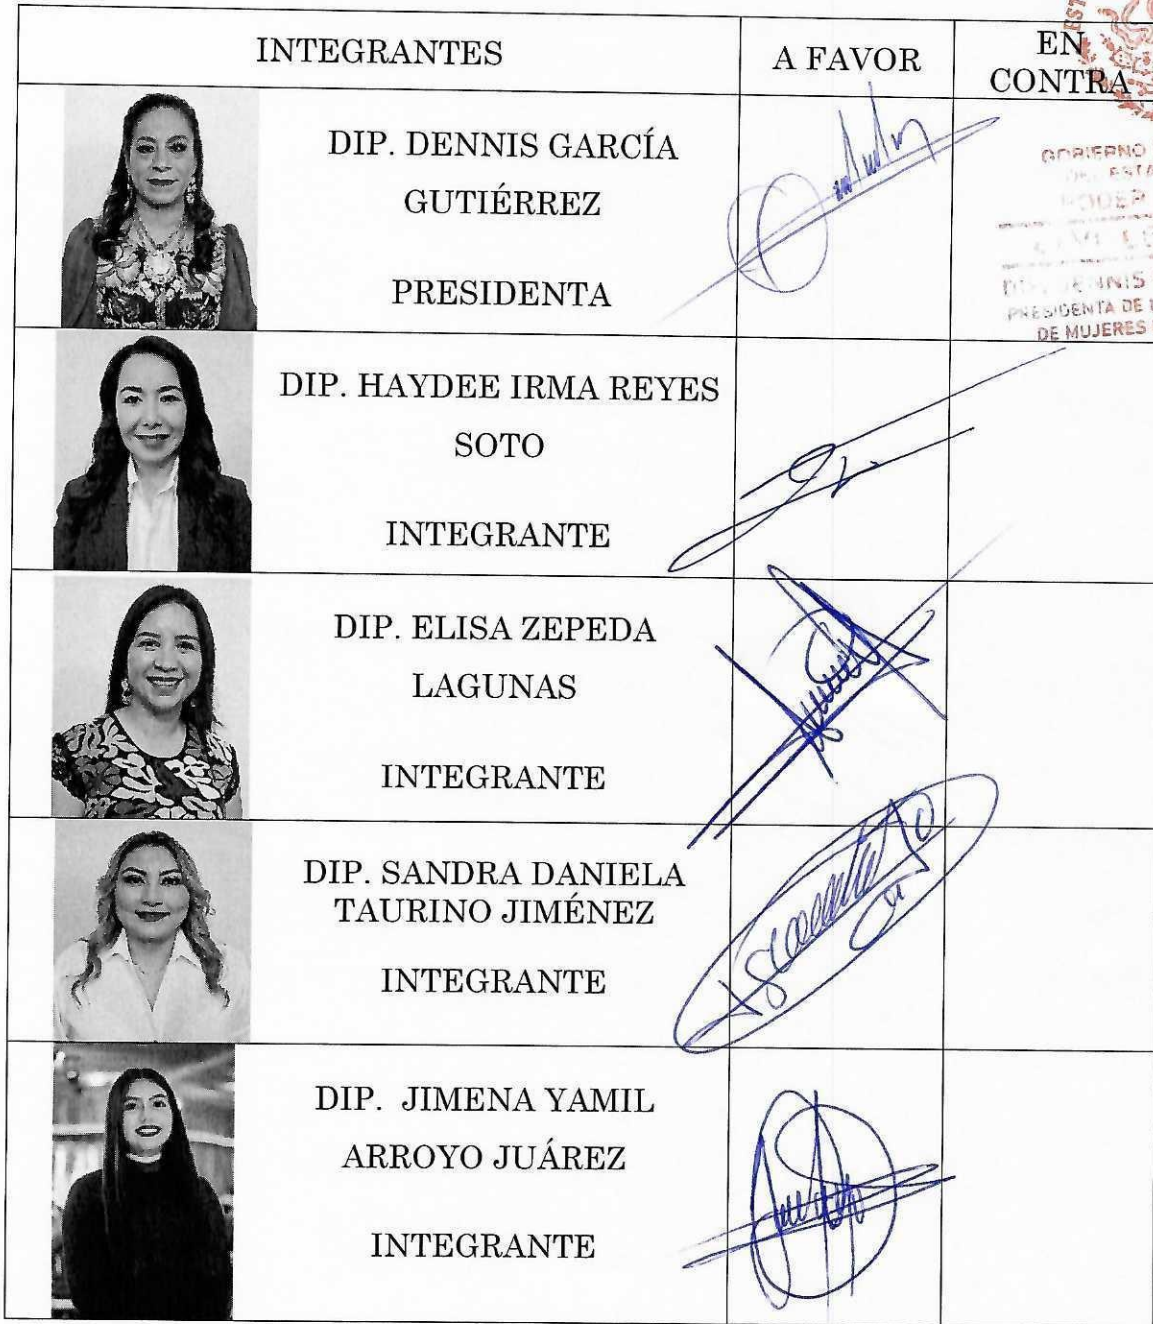 INTEGRANTES
A FAVOR
EN
CONTRA
DIP. DENNIS GARCÍA
GUTIÉRREZ
PRESIDENTA
GOBIERNO
PODER
DENNIS
PRESIDENTA DE
DE MUJERES
DIP. HAYDEE IRMA REYES
SOTO
INTEGRANTE
DIP. ELISA ZEPEDA
LAGUNAS
INTEGRANTE
DIP. SANDRA DANIELA
TAURINO JIMÉNEZ
INTEGRANTE
DIP. JIMENA YAMIL
ARROYO JUÁREZ
INTEGRANTE